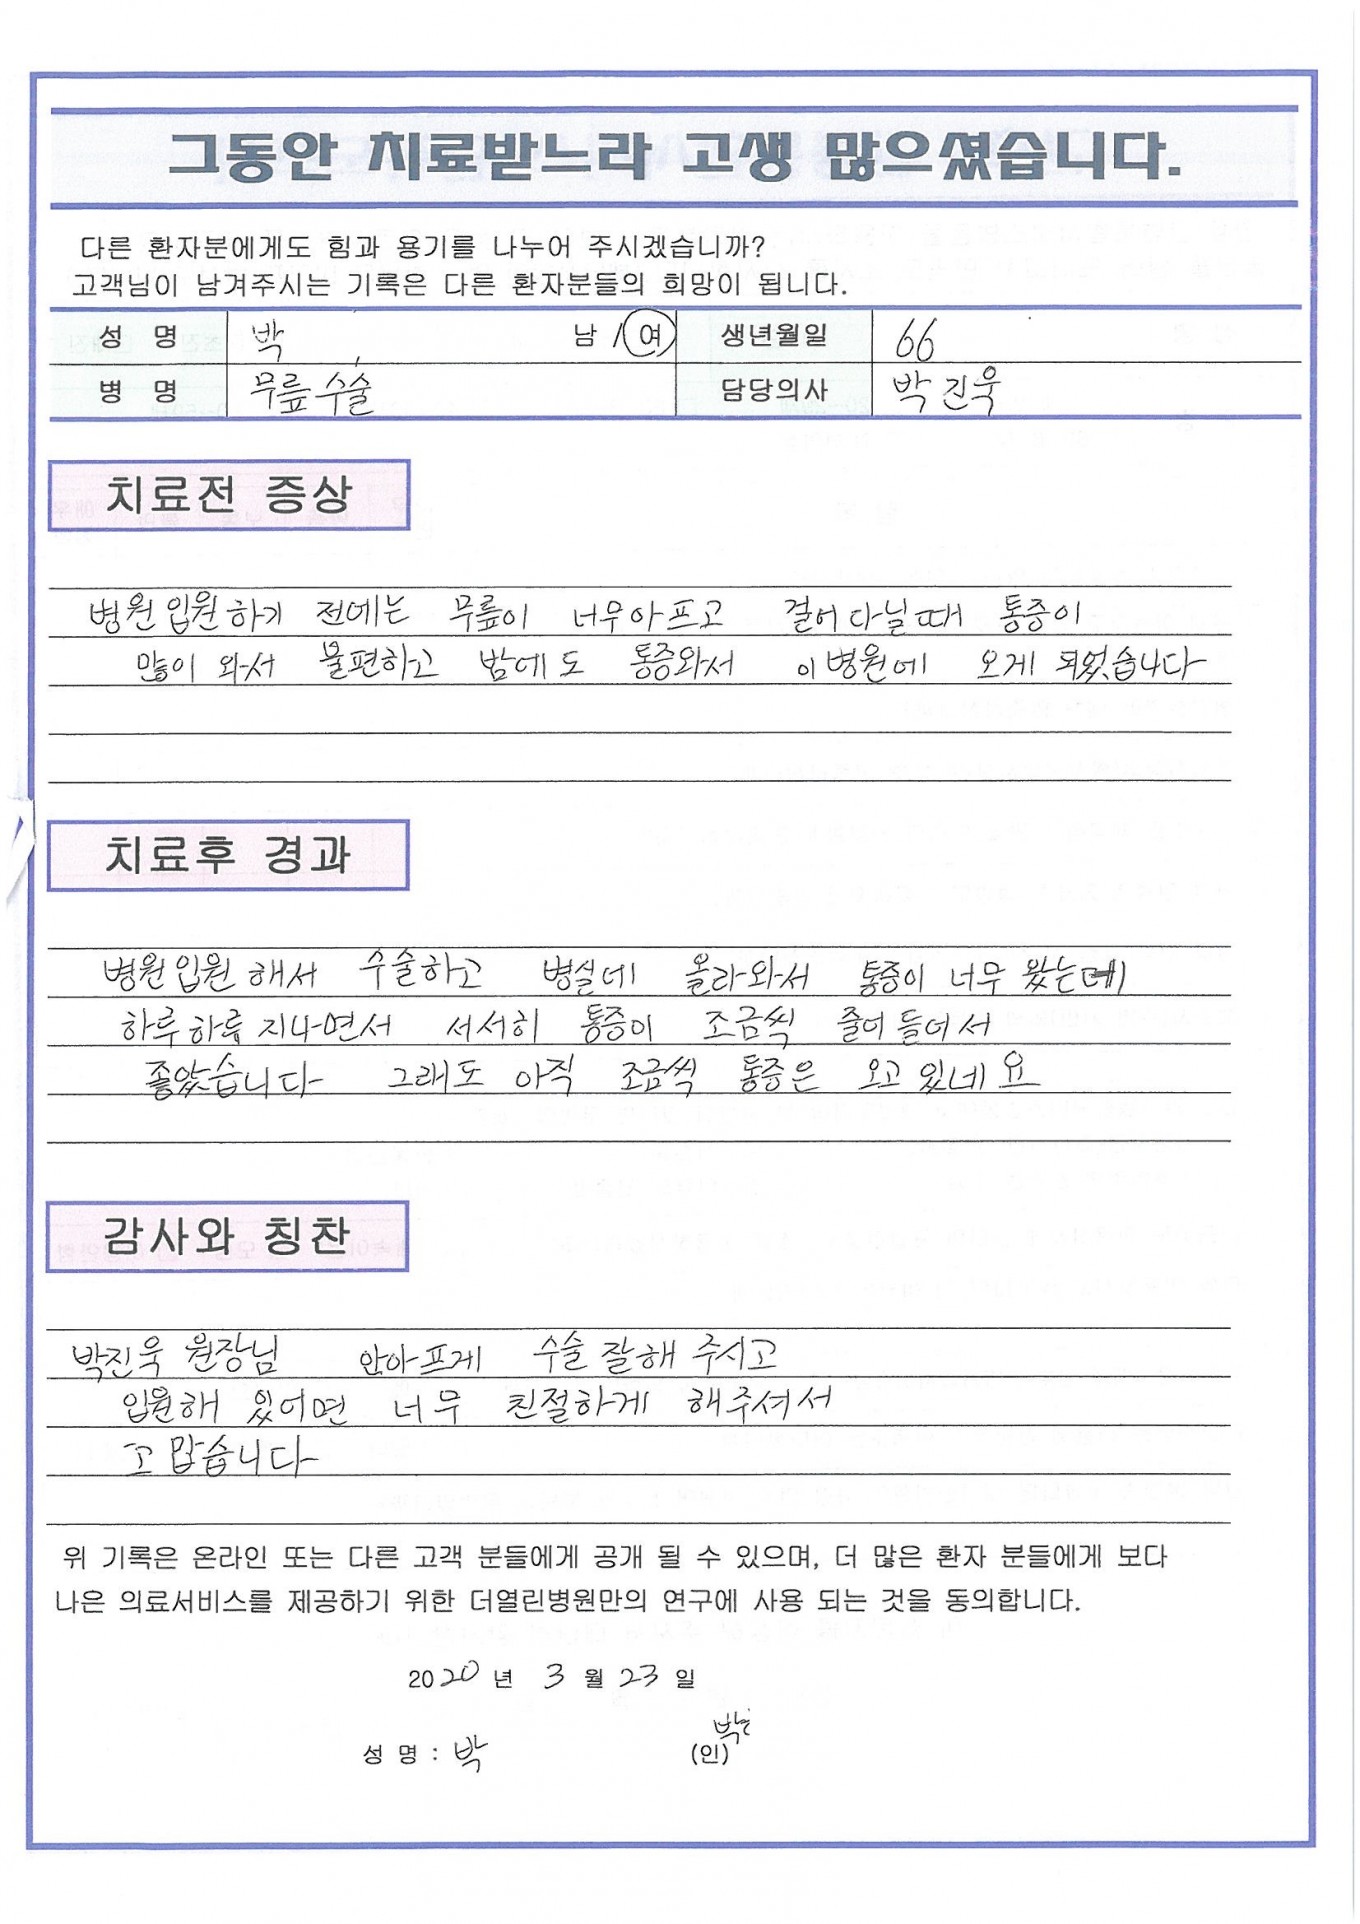 그동안 치료받느라 고생 많으셨습니다.
다른 환자분에게도 힘과 용기를 나누어 주시겠습니까?
고객님이 남겨주시는 기록은 다른 환자분들의 희망이 됩니다.
성 명 박 남 / 여 생년월일 66
병 명 무릎수술 담당의사 박진욱
치료전 증상
병원입원하기 전에는 무릎이 너무아프고 걸어다닐때 통증이
많이 와서 불편하고 밤에도 통증와서 이병원에 오게 되었습니다
치료후 경과
병원입원해서 수술하고 병실데 올라와서 통증이 너무 왔는데
하루하루 지나면서 서서히 통증이 조금씩 줄어들어서
좋았습니다 그래도 아직 조금씩 통증은 오고있네요
감사와 칭찬
박진욱 원장님 안아프게 수술잘해 주시고
입원해 있어면 너무 친절하게 해주셔서
고맙습니다
위 기록은 온라인 또는 다른 고객 분들에게 공개 될 수 있으며, 더 많은 환자 분들에게 보다
나은 의료서비스를 제공하기 위한 더열린병원만의 연구에 사용 되는 것을 동의합니다.
2020 년 3 월 23 일
성 명 : 박 (인)